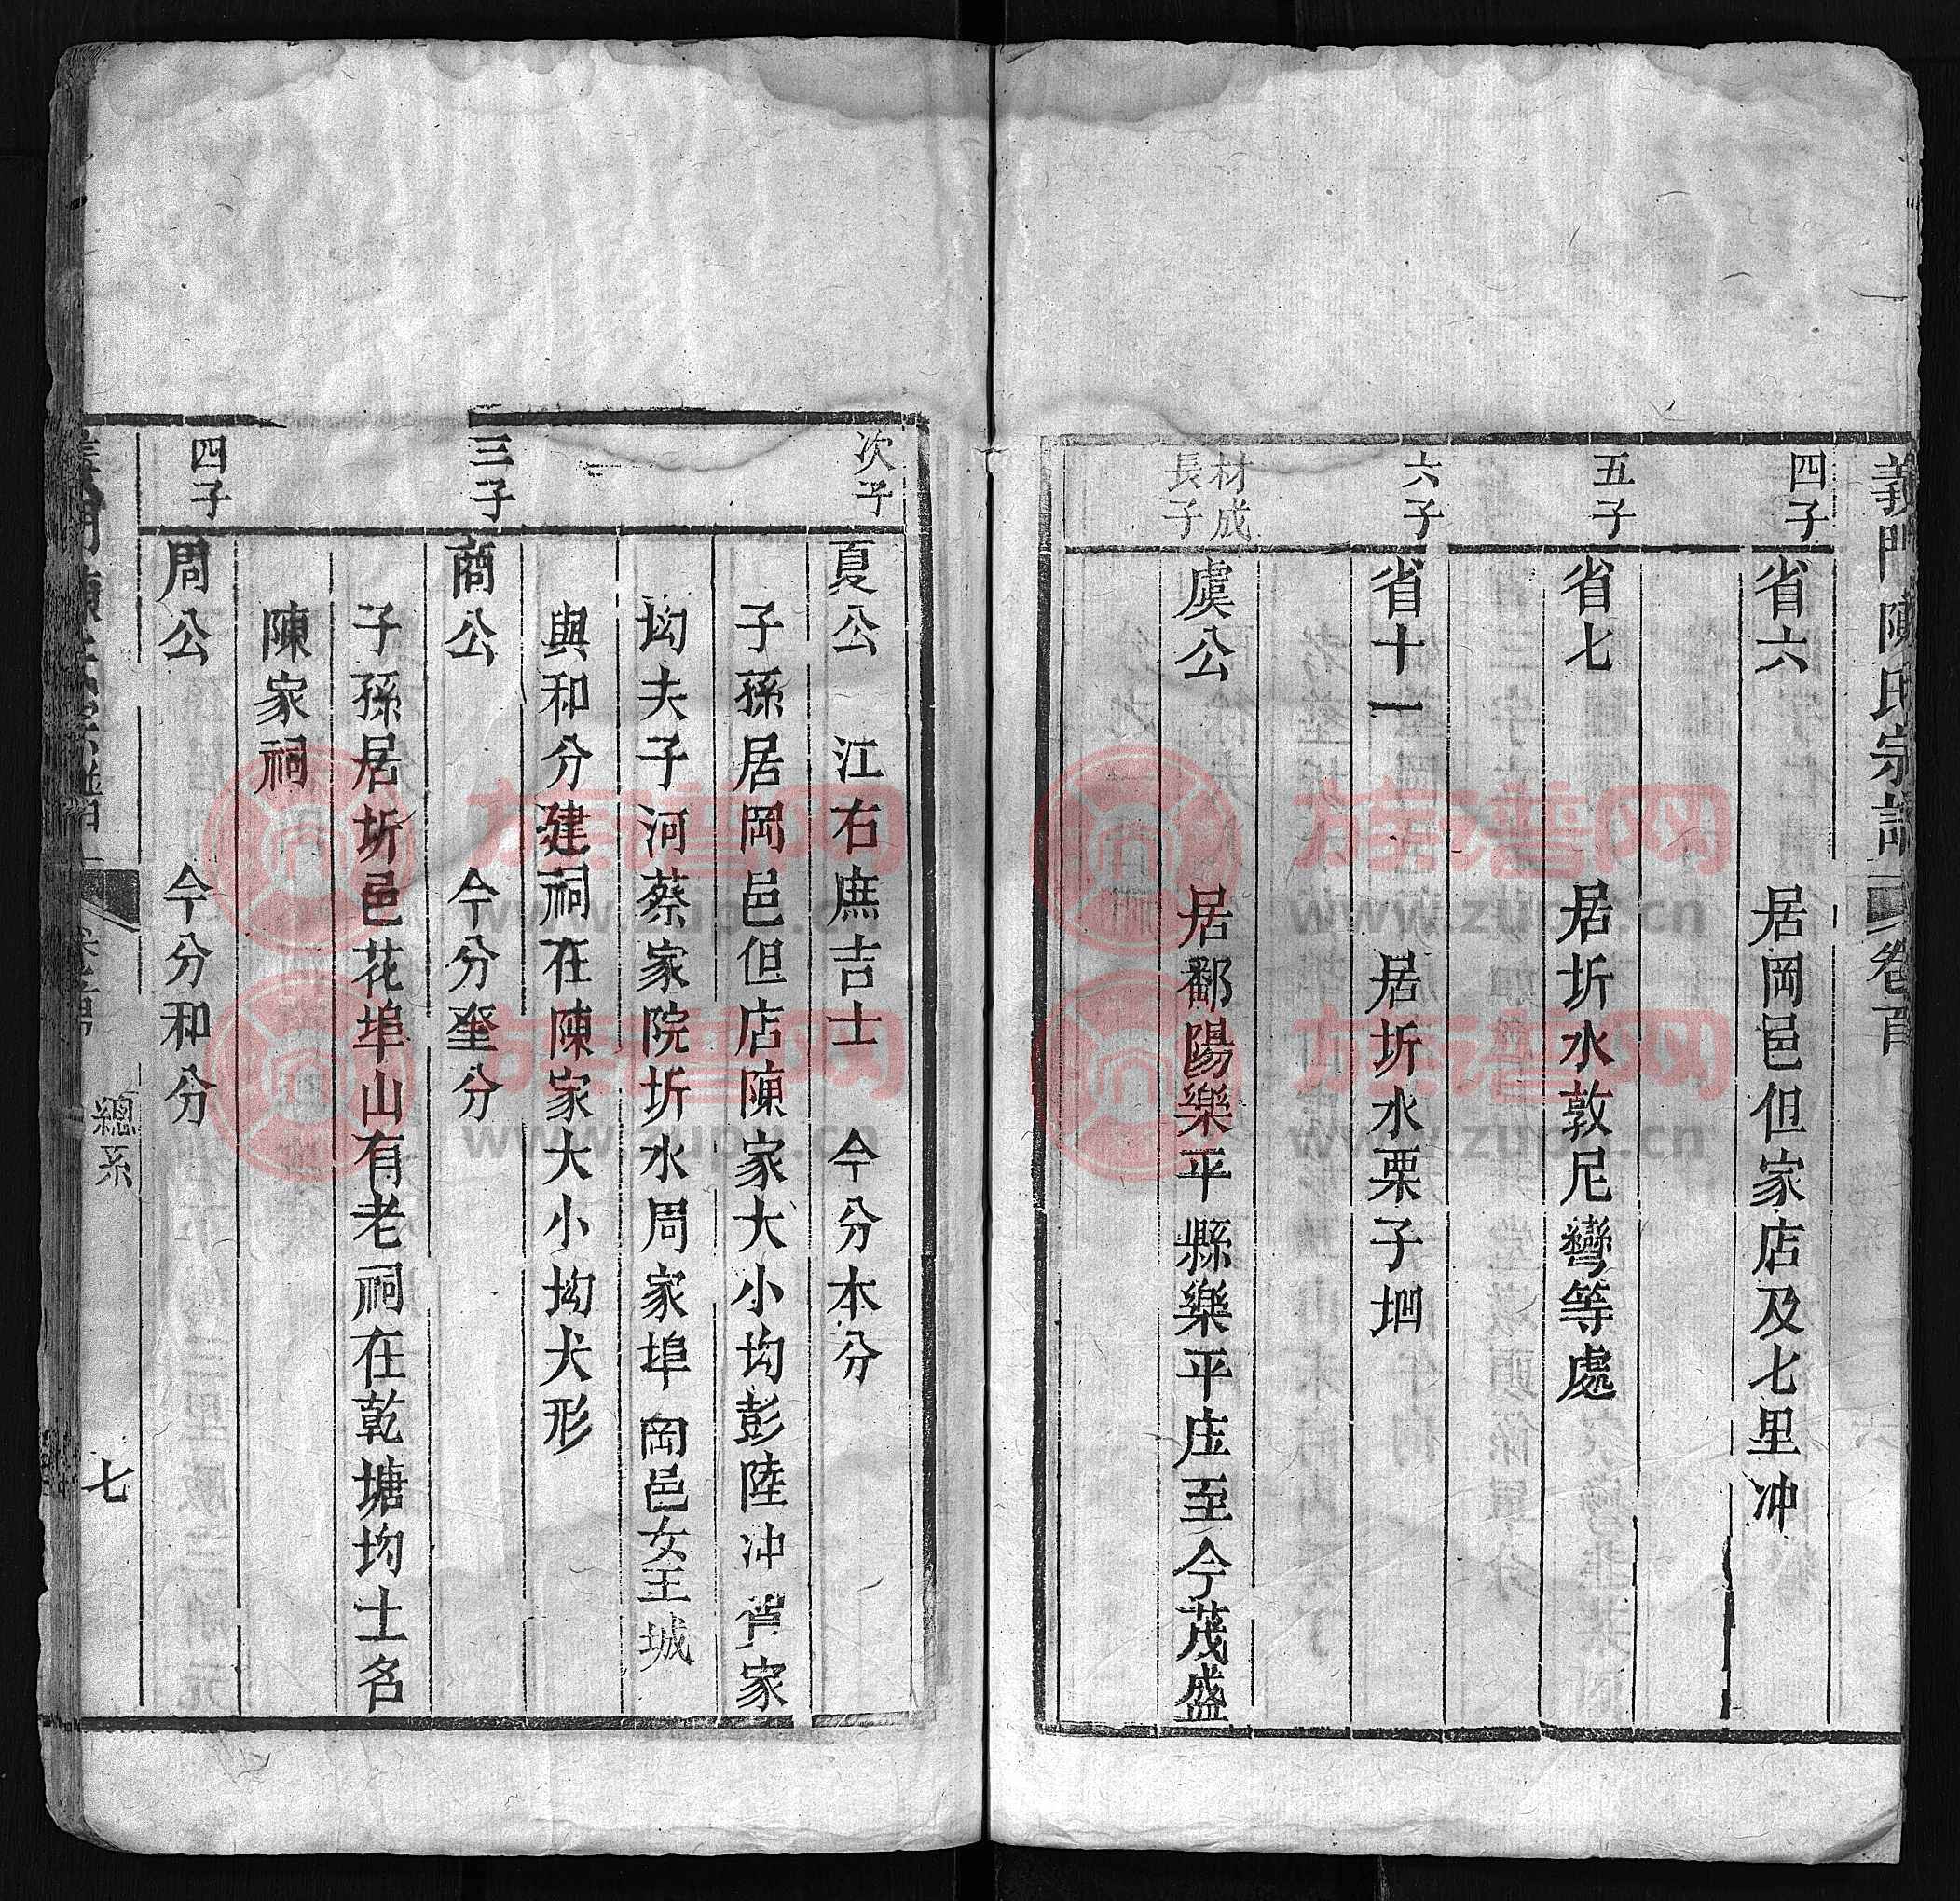 義門陳氏宗譜 卷首
四子
省六 居岡邑但家店及七里冲
五子
省七 居圻水敦尼彎等處
六子
省十一 居圻水栗子垇
材成
長子
虞公 居鄱陽樂平縣樂平庄至今茂盛
次子
夏公 江右庶吉士 今分本分
子孫居岡邑但店陳家大小坳彭陸冲芦家
坳夫子河蔡家院圻水周家埠岡邑女王城
與和分建祠在陳家大小坳犬形
三子
商公 今分奎分
子孫居圻邑花埠山有老祠在乾塘坳土名
陳家祠
四子
周公 今分和分
義門陳氏宗譜 卷首 總系 七
族譜网
www.zupu.cn
族譜网
www.zupu.cn
族譜网
www.zupu.cn
族譜网
www.zupu.cn